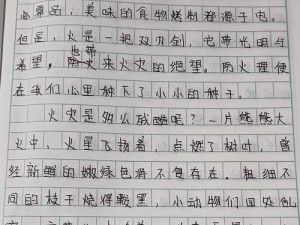 必需品，美味的食物烤制都源于它。
但是，火是一把双刃剑，它带光明与
希望。防火也带来火灾的绝望。防火理便
在我们心里种下了小小的种子。
火灾是多么残酷呢？一片熊熊大
火中，火星飞扬着，点燃了树叶，曾
经新鲜的嫩绿色将不复存在。粗细不
同的枝干烧得黢黑，小动物们四处乱